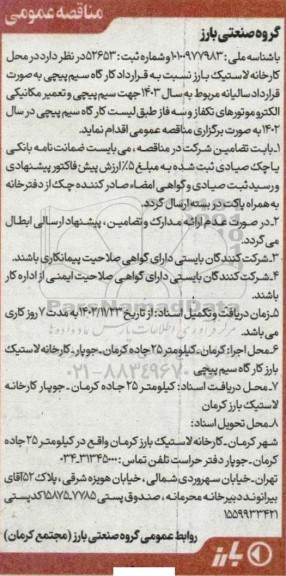 مناقصه عمومی
گروه صنعتی بارز
باشناسه ملی: ۱۰۱۰۰۹۷۷۹۸۳ وشماره ثبت: ۵۲۶۵۳ در نظر دارد در محل
کارخانه لاستیک بارز نسبت به قرارداد کارگاه سیم پیچی به صورت
قرارداد سالیانه مربوط به سال ۱۴۰۳ جهت سیم پیچی و تعمیر مکانیکی
الکتروموتورهای تکفاز و سه فاز طبق لیست کارگاه سیم پیچی در سال
۱۴۰۲ به صورت برگزاری مناقصه عمومی اقدام نماید.
۱ـ بابت تضامین شرکت در مناقصه، می بایست ضمانت نامه بانکی
یا چک صیادی ثبت شده به مبلغ ۵٪ ارزش پیش فاکتور پیشنهادی
و رسید ثبت صیادی و گواهی امضاء صادر کننده چک از دفترخانه
به همراه پاکت در بسته ارسال گردد.
۲ـ در صورت عدم ارائه مدارک و تضامین، پیشنهاد ارسالی ابطال
می گردد.
۳ـ شرکت کنندگان بایستی دارای گواهی صلاحیت پیمانکاری باشند.
۴ـ شرکت کنندگان بایستی دارای گواهی صلاحیت ایمنی از اداره کار
باشند.
۵ـ زمان دریافت و تکمیل اسناد: از تاریخ ۱۴۰۲/۱۱/۲۳ به مدت ۷ روز کاری
می باشد.
۶ـ محل اجرا: کرمان ـ کیلومتر ۲۵ جاده کرمان ـ جوپار ـ کارخانه لاستیک
بارز کارگاه سیم پیچی
۷ـ محل دریافت اسناد: کیلومتر ۲۵ جاده کرمان ـ جوپار کارخانه
لاستیک بارز کرمان
۸ـ محل تحویل اسناد:
شهر کرمان ـ کارخانه لاستیک بارز کرمان واقع در کیلومتر ۲۵ جاده
کرمان ـ جوپار دفتر حراست تلفن تماس: ۳۱۳۴۵۰۰۰-۰۳۴
تهران ـ خیابان سهروردی شمالی، خیابان هویزه شرقی، پلاک ۵۲ آقای
بیرانوند دبیرخانه محرمانه، صندوق پستی ۷۷۸۵ـ۱۵۸۷۵ کدپستی
۱۵۵۹۹۳۳۴۲۱
روابط عمومی گروه صنعتی بارز (مجتمع کرمان)
بارز
ParsNamadData
۰۲۱-۸۸۳۴۹۶۷۰